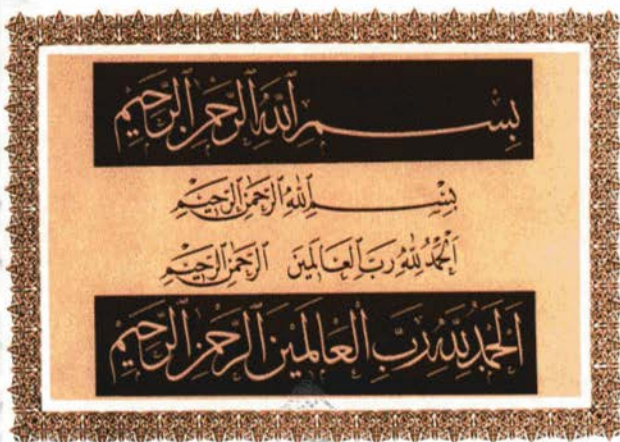 بِسْمِ ٱللَّهِ ٱلرَّحْمَٰنِ ٱلرَّحِيمِ
بِسْمِ ٱللَّهِ ٱلرَّحْمَٰنِ ٱلرَّحِيمِ
اَلْحَمْدُ لِلَّهِ رَبِّ الْعَالَمِينَ الرَّحْمَٰنِ الرَّحِيمِ
اَلْحَمْدُ لِلَّهِ رَبِّ الْعَالَمِينَ الرَّحْمَٰنِ الرَّحِيمِ